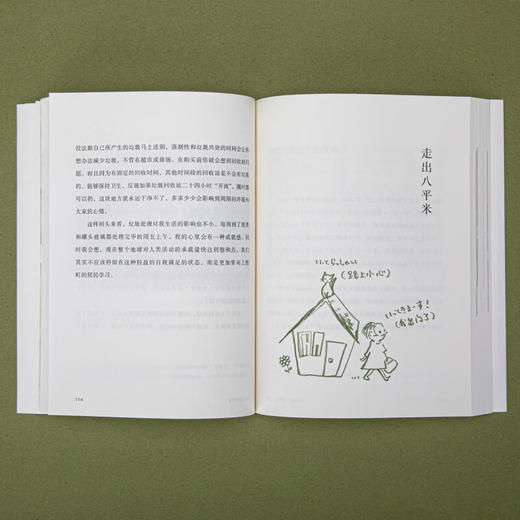 没法跟自己所产生的垃圾马上道别，强制性和垃圾共处的时间会让你
想办法减少垃圾，不管在超市或商场，在购买前你就会想到回收的问
题。而且因为有固定的回收时间，其他时间段的回收站是不会有垃圾
的，能够保持卫生。反我如果垃圾回收站二十四小时“开放”，随时都
可以扔，这块地方就永远干净不了，多多少少会影响到周围的环境和
大家的心情。
这样回头来看，垃圾处理对我生活的影响也不小。每周到了瓶类
和罐头玻璃都处理完毕的周五上午，我的心里会有一种成就感。同
时我会想，现在整个地球对人类活动的承载量快达到饱和点，我们
其实不应该停留在这种轻盈的自我满足的状态，而是更加要向上胜
町的居民学习。
114
走出八平米
いってらっしゃい
(路上小心)
いってきまーす！
(我出门了)